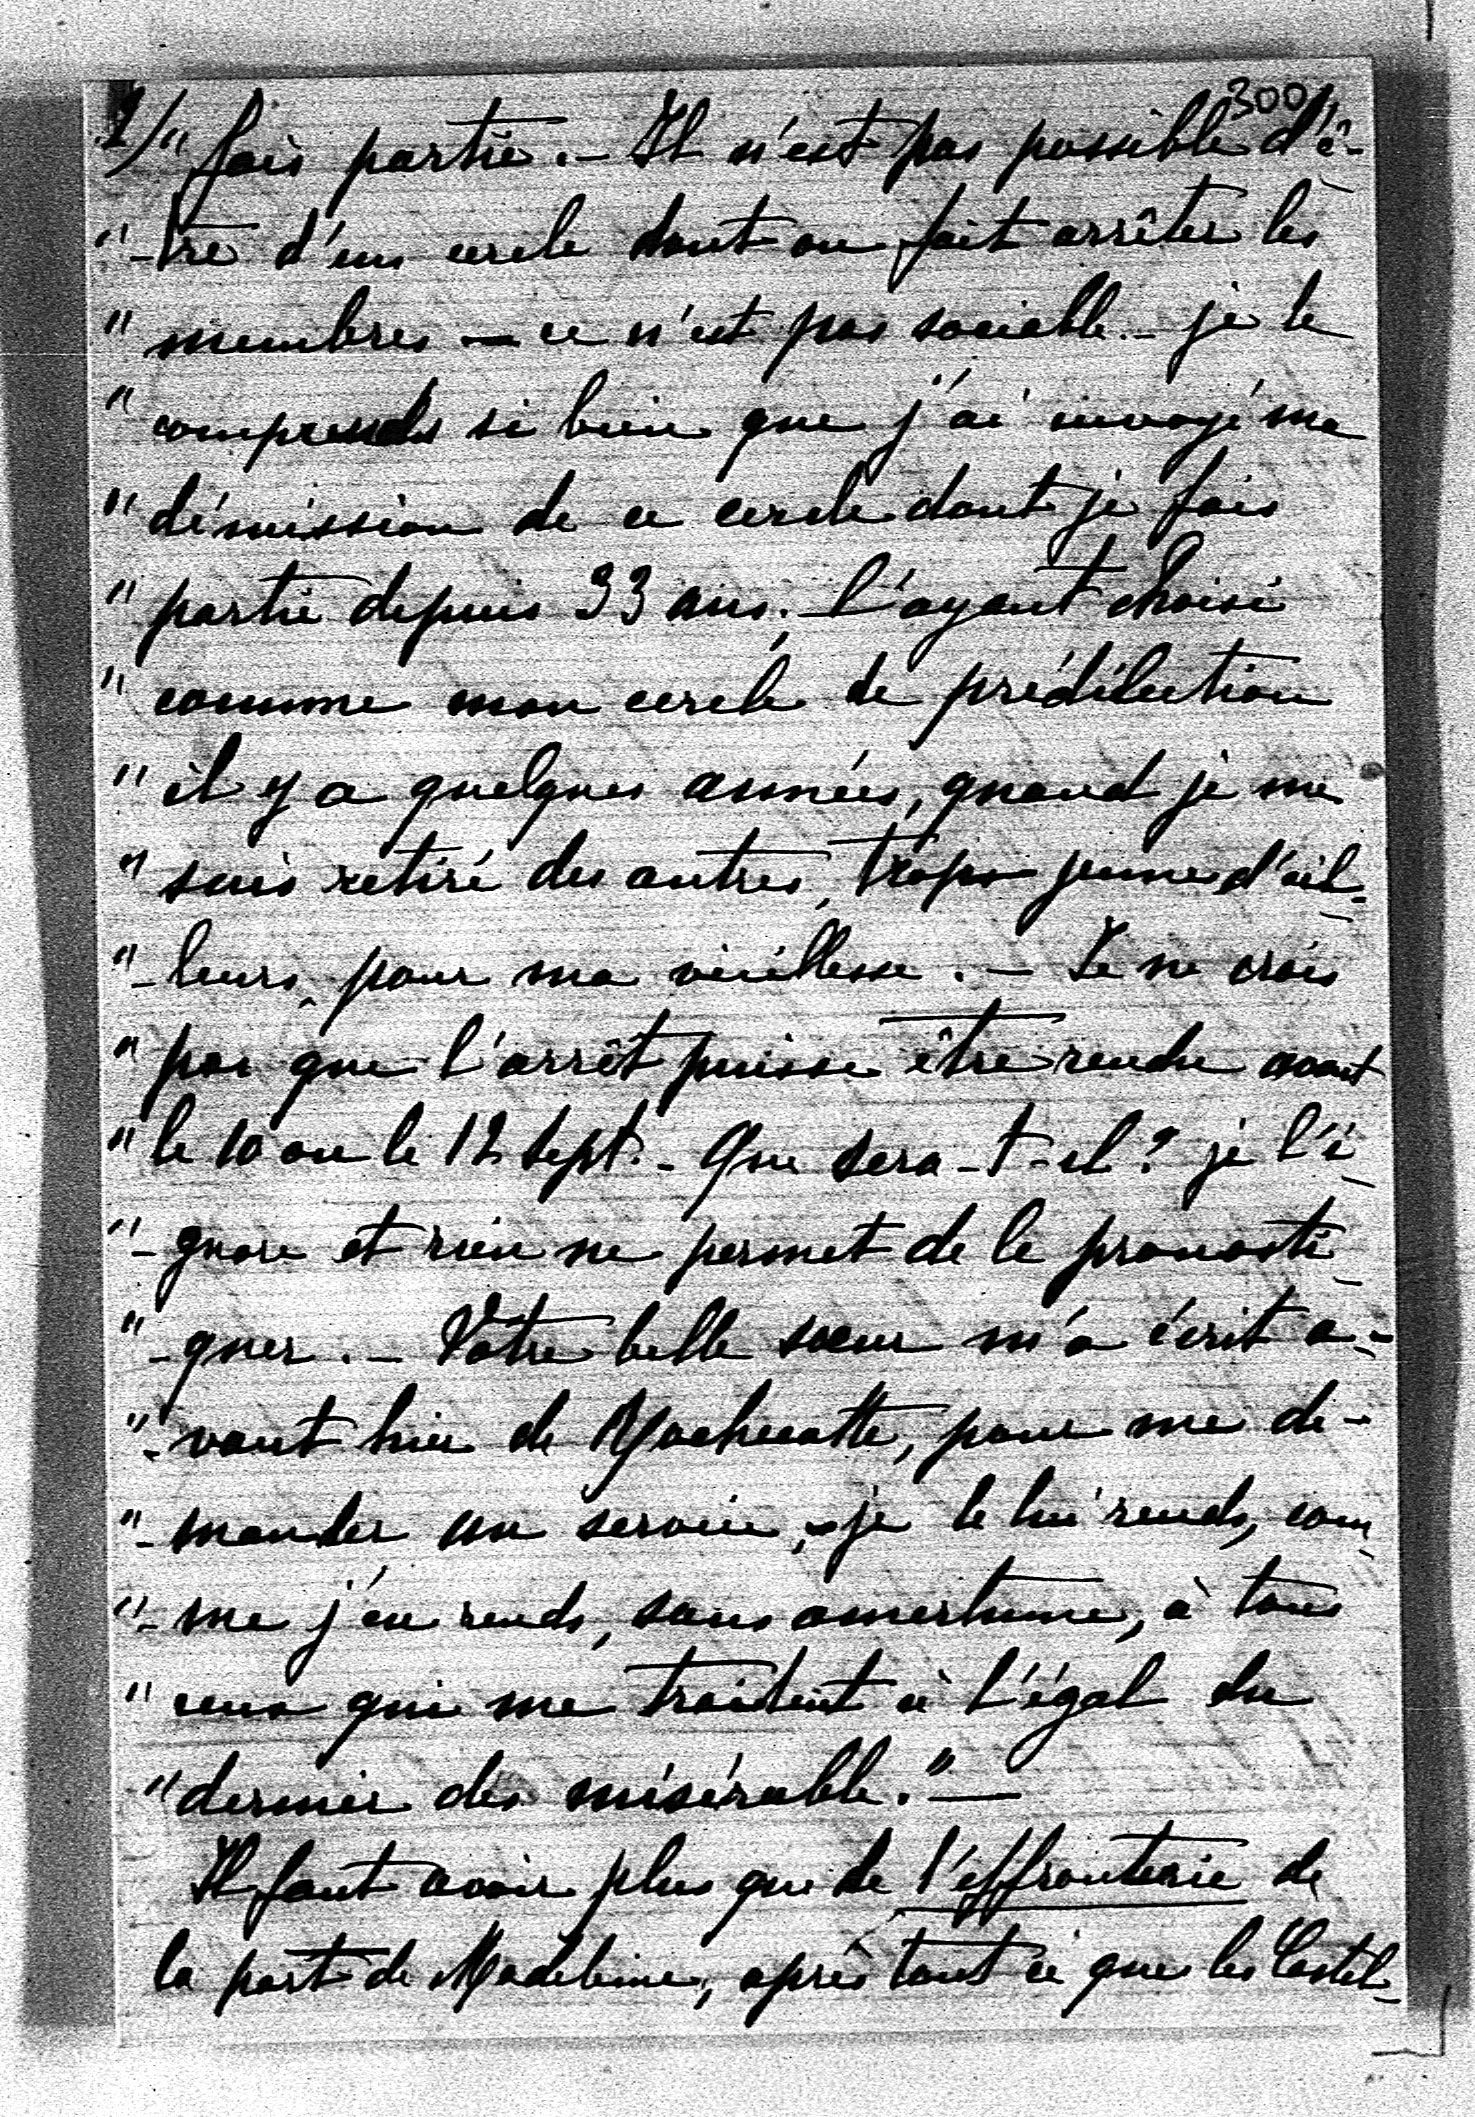 300
1/ " fais partie. — Il n'est pas possible d'ê-
" -tre d'un cercle dont on fait arrêter les
" membres — ce n'est pas sociable — je le
" comprends si bien que j'ai envoyé ma
" démission de ce cercle dont je fais
" partie depuis 33 ans, l'ayant choisi
" comme mon cercle de prédilection
" il y a quelques années, quand je me
" suis retiré des autres, trop jeunes d'ail-
" -leurs, pour ma vieillesse. — Je ne crois
" pas que l'arrêt puisse être rendu avant
" le 10 ou le 12 Sept. — Que sera-t-il ? je l'i-
" -gnore et rien ne permet de le pronosti-
" -quer. — Votre belle sœur m'a écrit a-
" -vant hier de Rochecotte, pour me de-
" -mander un service, je le lui rends, com-
" -me j'en rends, sans amertume, à tous
" ceux qui me traitent à l'égal du
" dernier des misérable." —
Il faut avoir plus que de l'effronterie de
la part de Madeleine, après tout ce que les Castel-